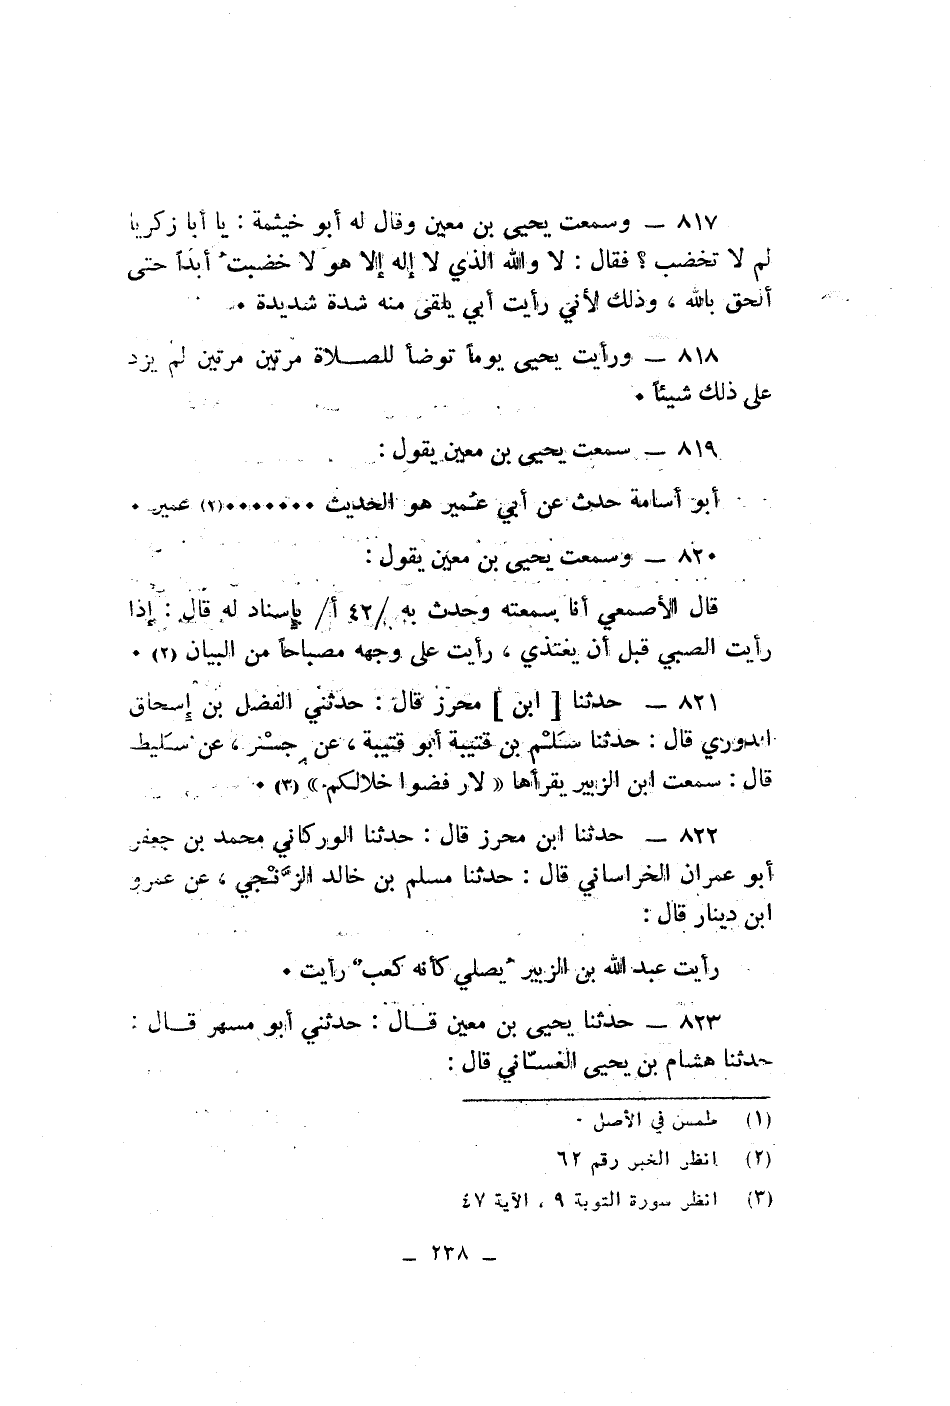 ٨١٧ ـ وسمعت يحيى بن معين وقال له أبو خيثمة : يا أبا زكريا
لم لا تخضب ؟ فقال : لا والله الذي لا إله إلا هو لا خضبت أبداً حتى
ألحق بالله ، وذلك لأني رأيت أبي يلقى منه شدة شديدة ٠
٨١٨ ـ ورأيت يحيى يوماً توضأ للصلاة مرتين مرتين لم يزد
على ذلك شيئاً ٠
٨١٩ ـ سمعت يحيى بن معين يقول :
أبو أسامة حدث عن أبي عُمير هو الحديث ٠٠٠٠٠٠٠(٢) عمير ٠
٨٢٠ ـ وسمعت يحيى بن معين يقول :
قال الأصمعي أنا سمعته وحدث به /٤٢ أ/ بإسناد له قال : إذا
رأيت الصبي قبل أن يغتذي ، رأيت على وجهه مصباحاً من البيان (٢) ٠
٨٢١ ـ حدثنا [ ابن ] محرز قال : حدثني الفضل بن إسحاق
الدوري قال : حدثنا سَلْم بن قتيبة أبو قتيبة ، عن جسْر ، عن سليط
قال : سمعت ابن الزبير يقرأها « لارفضوا خلالكم » (٣) ٠
٨٢٢ ـ حدثنا ابن محرز قال : حدثنا الوركاني محمد بن جعفر
أبو عمران الخراساني قال : حدثنا مسلم بن خالد الزَّنْجي ، عن عمرو
ابن دينار قال :
رأيت عبد الله بن الزبير يُصلي كأنه كعبٌ رأيت ٠
٨٢٣ ـ حدثنا يحيى بن معين قال : حدثني أبو مسهر قال :
حدثنا هشام بن يحيى الغسّاني قال :
(١) طمس في الأصل ٠
(٢) انظر الخبر رقم ٦٢
(٣) انظر سورة التوبة ٩ ، الآية ٤٧
ـ ٢٣٨ ـ